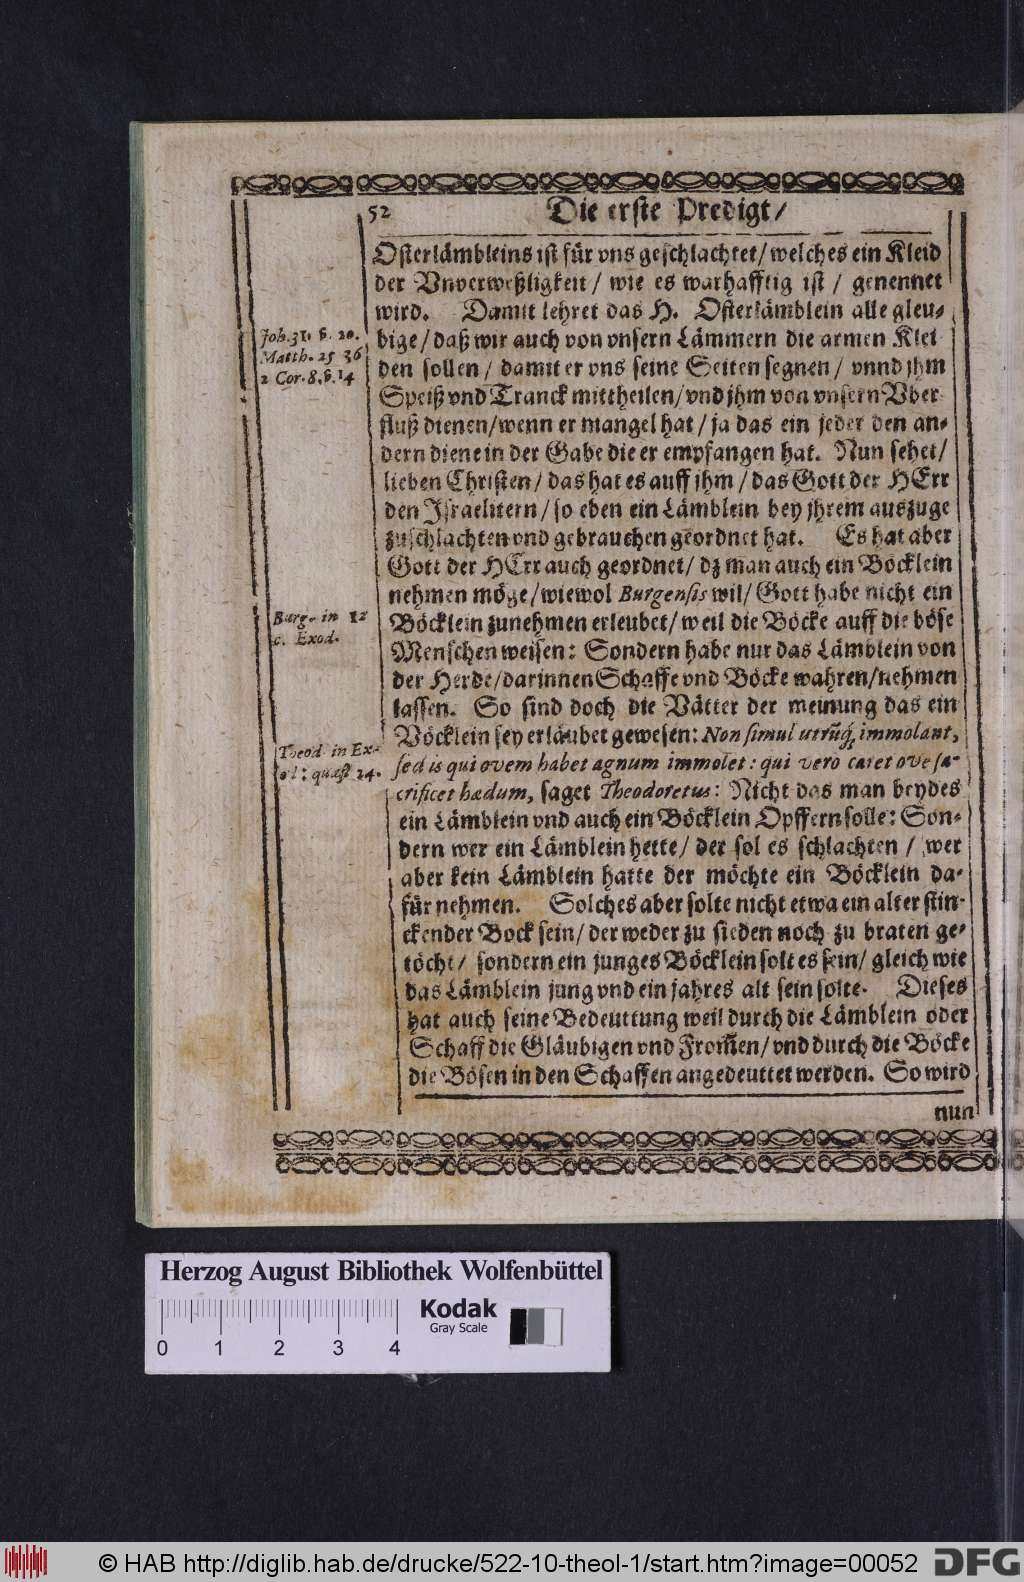 52
Die erste Predigt/
Osterlämbleins ist für vns geschlachtet/welches ein Kleid
der Vnverweßligkeit/ wie es warhafftig ist/ genennet
wird. Damit lehret das H. Osterlämblein alle gleu-
bige/daß wir auch von vnsern Lämmern die armen Klei
den sollen/ damit er vns seine Seiten segnen/ vnnd jhm
Speiß vnd Tranck mittheilen/vnd jhm von vnsern Vber
fluß dienen/wenn er mangel hat/ ja das ein jeder den an-
dern diene in der Gabe die er empfangen hat. Nun sehet/
lieben Christen/ das hat es auff jhm/das Gott der HErr
den Israelitern/so eben ein Lämblein bey jhrem auszuge
zuschlachten vnd gebrauchen geordnet hat. Es hat aber
Gott der HErr auch geordnet/ dz man auch ein Böcklein
nehmen möge/wiewol Burgensis wil/ Gott habe nicht ein
Böcklein zunehmen erleubet/ weil die Böcke auff die böse
Menschen weisen: Sondern habe nur das Lämblein von
der Herde/darinnen Schaffe vnd Böcke wahren/nehmen
lassen. So sind doch die Vätter der meinung das ein
Böcklein sey erläubet gewesen: Non simul utrũq; immolant,
sed is qui ovem habet agnum immolet: qui vero caret ove sa-
crificet hædum, saget Theodoretus: Nicht das man beydes
ein Lämblein vnd auch ein Böcklein Opffern solle: Son-
dern wer ein Lämblein hette/ der sol es schlachten/ wer
aber kein Lämblein hatte der möchte ein Böcklein da-
für nehmen. Solches aber solte nicht etwa ein alter stin-
ckender Bock sein/ der weder zu sieden noch zu braten ge-
töcht/ sondern ein junges Böcklein solt es sein/ gleich wie
das Lämblein jung vnd ein jahres alt sein solte. Dieses
hat auch seine Bedeuttung weil durch die Lämblein oder
Schaff die Gläubigen vnd From̃en/ vnd durch die Böcke
die Bösen in den Schaffen angedeuttet werden. So wird
nun
Job. 31. v. 20.
Matth. 25 36
2 Cor. 8. v. 14
Burg. in 12
c. Exod.
Theod in Ex-
od: quæst 24.
Herzog August Bibliothek Wolfenbüttel
Kodak
Gray Scale
0 1 2 3 4
© HAB http://diglib.hab.de/drucke/522-10-theol-1/start.htm?image=00052
DFG